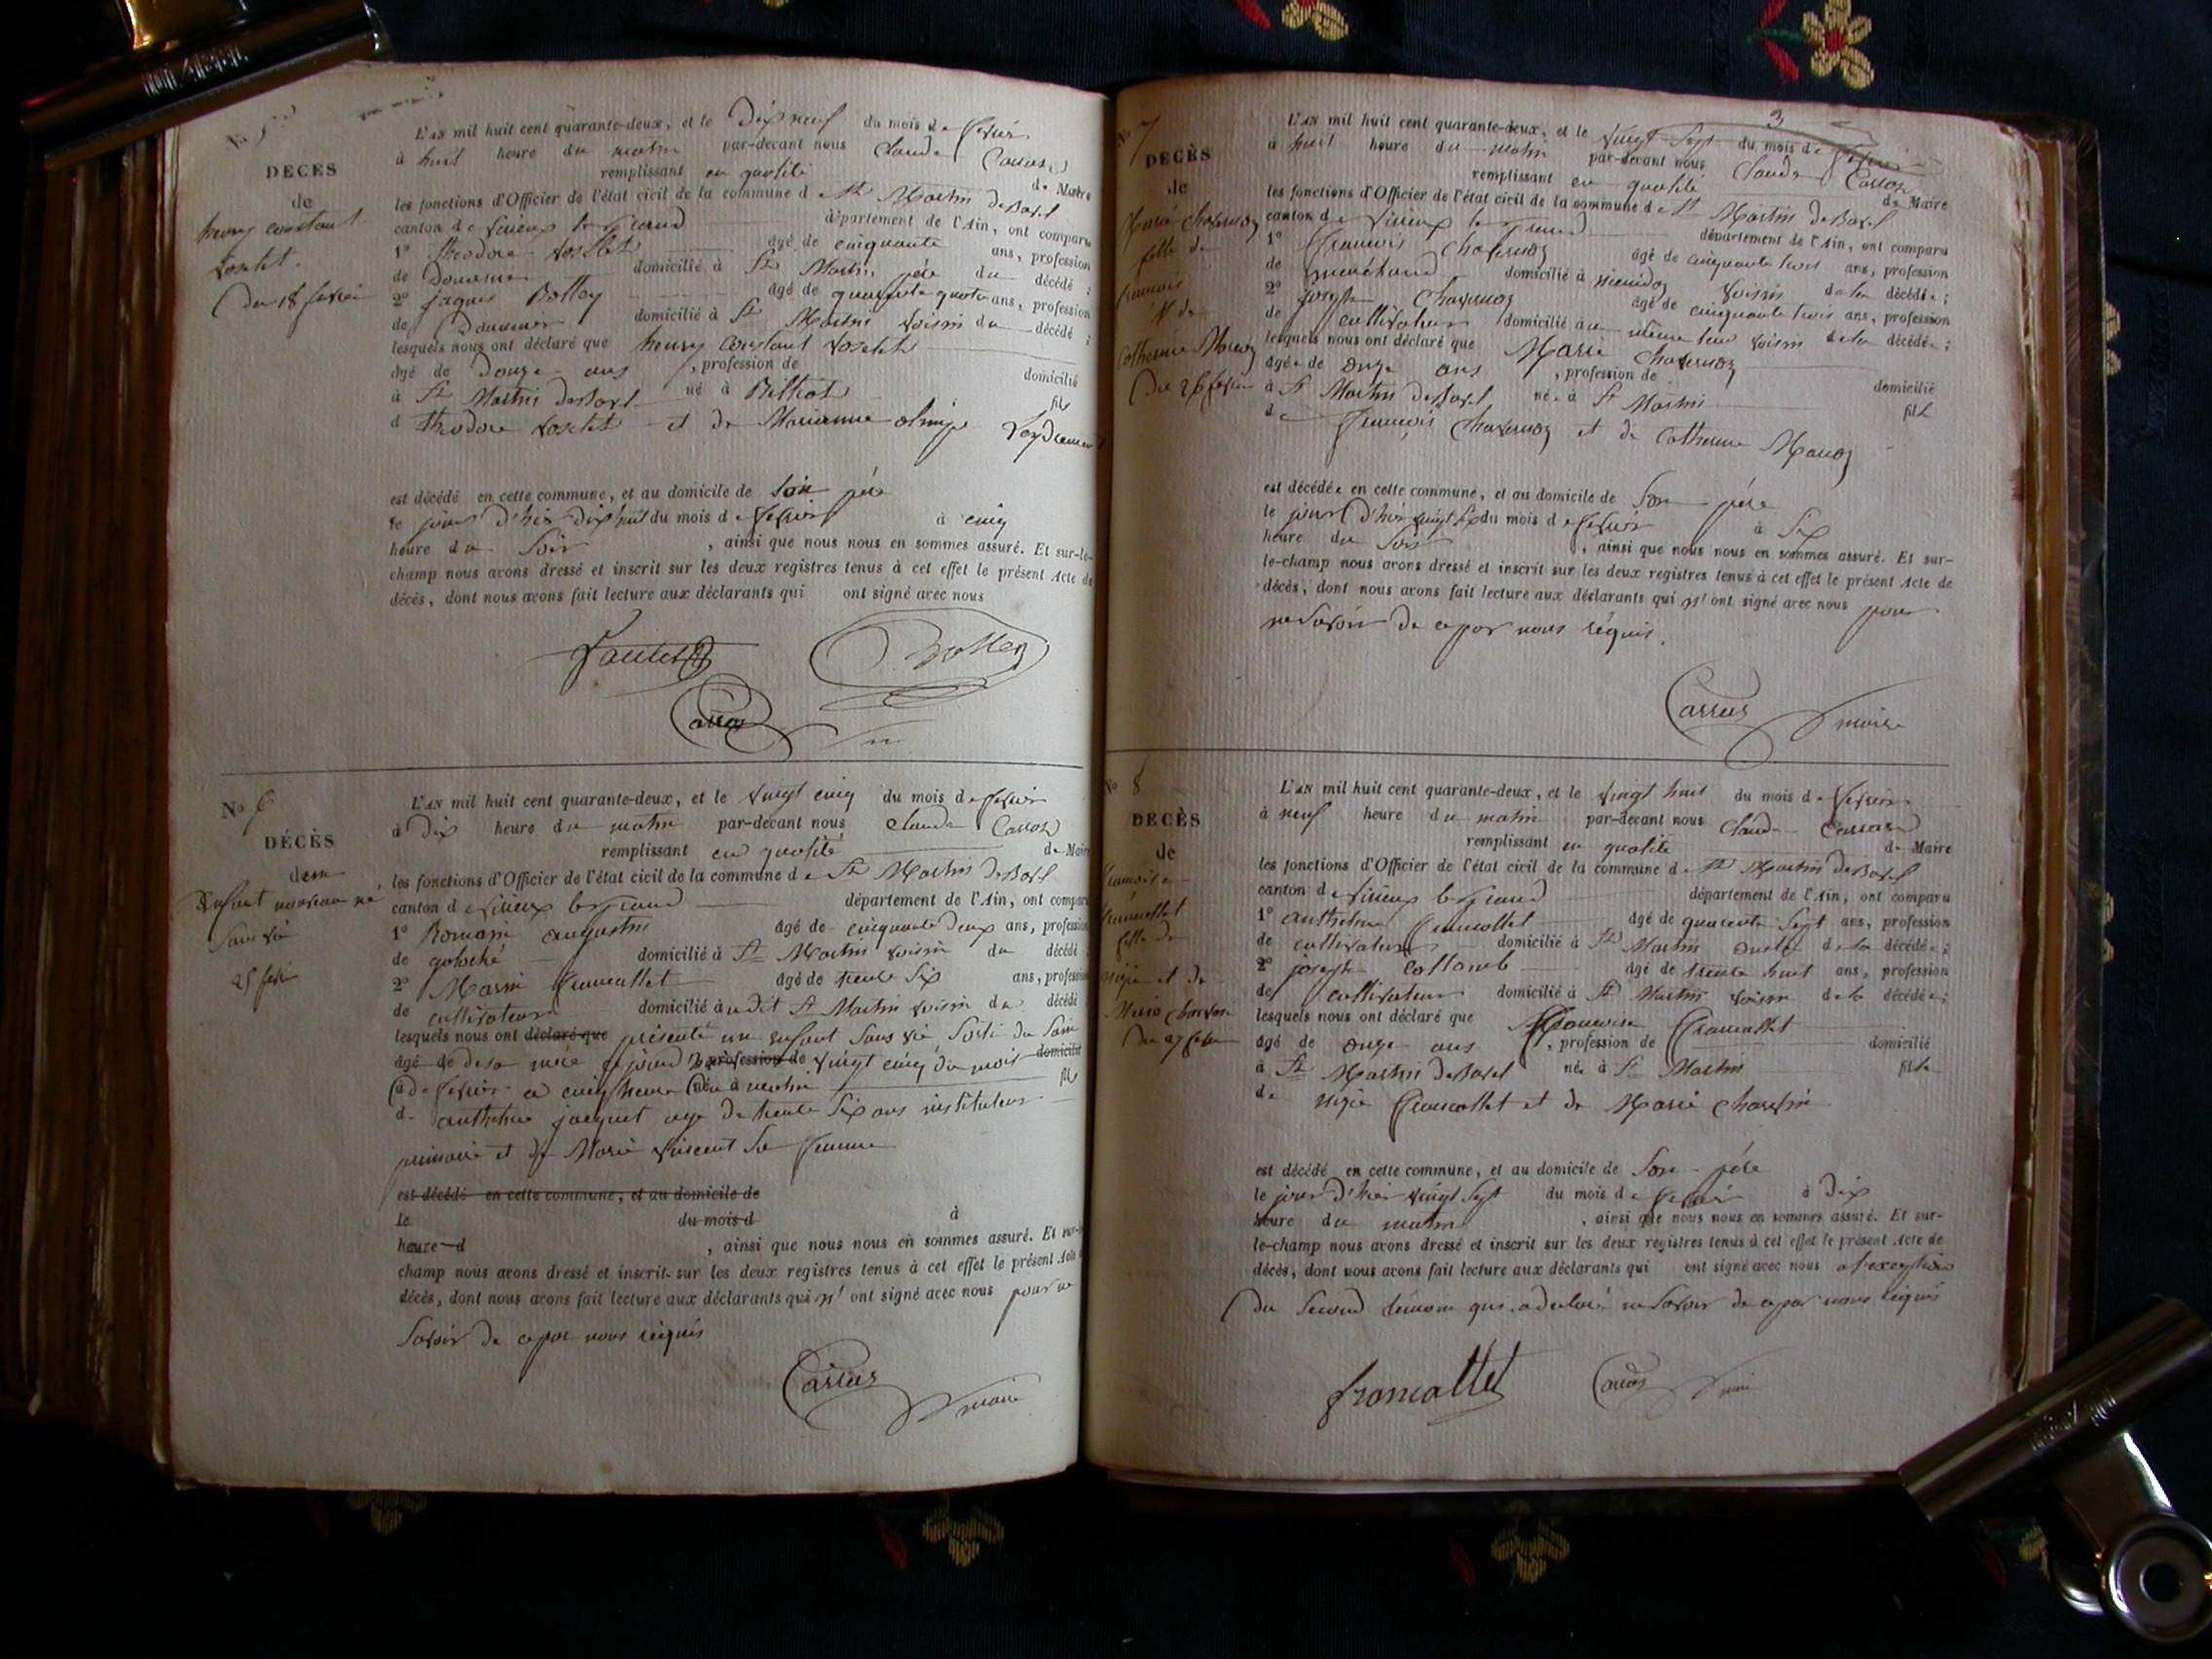 N° 5
DECES
de
henry constant
Voutet.
Du 18 fevrier
L'AN mil huit cent quarante-deux, et le Dix neuf du mois de fevrier
à huit heure du matin par-devant nous Claude Carrou
remplissant en qualité de Maire
les fonctions d'Officier de l'état civil de la commune de St Martin de Bavel
canton de virieux le grand département de l'Ain, ont comparu
1° theodore agé de cinquante ans, profession
de Douanier domicilié à St Martin père du décédé ;
2° jaques Bottey agé de quarante quatre ans, profession
de Douanier domicilié à St Martin voisin du décédé ;
lesquels nous ont déclaré que henry Constant
agé de Douze ans , profession de domicilié
à St Martin de Bavel né à fils
d theodore et de Marianne olimpe
est décédé en cette commune, et au domicile de son père
le jour d'hier dix huit du mois de fevrier à cinq
heure du soir , ainsi que nous nous en sommes assuré. Et sur-le-
champ nous avons dressé et inscrit sur les deux registres tenus à cet effet le présent Acte de
décès, dont nous avons fait lecture aux déclarants qui ont signé avec nous
Bottey
N° 6
DÉCÈS
d'un
Enfant nouveau né
sans vie
25 fevrier
L'AN mil huit cent quarante-deux, et le vingt cinq du mois de fevrier
à Dix heure du matin par-devant nous Claude Carrou
remplissant en qualité de Maire
les fonctions d'Officier de l'état civil de la commune de St Martin de Bavel
canton de virieux le grand département de l'Ain, ont comparu
1° Romain augustin agé de cinquante deux ans, profession
de domicilié à St Martin voisin du décédé
2° Marin francallet agé de trente six ans, profession
de cultivateur domicilié au dit St Martin voisin du décédé
lesquels nous ont déclaré que présenté un enfant sans vie sorti du sein
agé de de sa mère ce jour d'hui profession de vingt cinq du mois domicilié
à de fevrier a cinq heures du né à matin fils
d. anthelme jacquet age de trente six ans instituteur
primaire et de Marie vincent sa femme
est décédé en cette commune, et au domicile de
le du mois d à
heure d , ainsi que nous nous en sommes assuré. Et sur-le-
champ nous avons dressé et inscrit sur les deux registres tenus à cet effet le présent Acte de
décès, dont nous avons fait lecture aux déclarants qui n' ont signé avec nous pour ne
savoir de ce par nous requis
Carrou maire
3
N° 7
DECÈS
de
Marie
fille de
francois
& de
Catherine
Du 26 fevrier
L'AN mil huit cent quarante-deux, et le vingt sept du mois de fevrier
à huit heure du matin par-devant nous Claude Carrou
remplissant en qualité de Maire
les fonctions d'Officier de l'état civil de la commune de St Martin de Bavel
canton de virieux le grand département de l'Ain, ont comparu
1° francois agé de cinquante trois ans, profession
de marchand domicilié à voisin de la décédée ;
2° joseph agé de cinquante trois ans, profession
de cultivateur domicilié au même lieu voisin de la décédée ;
lesquels nous ont déclaré que Marie
agée de onze ans , profession de domicilié
à St Martin de Bavel née à St Martin fille
de francois et de Catherine
est décédée en cette commune, et au domicile de son père
le jour d'hier vingt six du mois de fevrier à six
heure du soir , ainsi que nous nous en sommes assuré. Et sur-
le-champ nous avons dressé et inscrit sur les deux registres tenus à cet effet le présent Acte de
décès, dont nous avons fait lecture aux déclarants qui n' ont signé avec nous pour
ne savoir de ce par nous réquis.
Carrou maire
N° 8
DECÈS
de
francoise
francallet
fille de
et de
Marie
Du 27 fevrier
L'AN mil huit cent quarante-deux, et le vingt huit du mois de fevrier
à neuf heure du matin par-devant nous Claude Carrou
remplissant en qualité de Maire
les fonctions d'Officier de l'état civil de la commune de St Martin de Bavel
canton de virieux le grand département de l'Ain, ont comparu
1° anthelme francallet agé de quarante sept ans, profession
de cultivateur domicilié à St Martin oncle de la décédée ;
2° joseph Collomb agé de trente huit ans, profession
de cultivateur domicilié à St Martin voisin de la décédée ;
lesquels nous ont déclaré que francoise francallet
agé de onze ans , profession de domicilié
à St Martin de Bavel née à St Martin fille
de francallet et de Marie
est décédé en cette commune, et au domicile de son père
le jour d'hier vingt sept du mois de fevrier à dix
heure du matin , ainsi que nous nous en sommes assuré. Et sur-
le-champ nous avons dressé et inscrit sur les deux registres tenus à cet effet le présent Acte de
décès, dont nous avons fait lecture aux déclarants qui ont signé avec nous a l'exception
du second témoin qui a déclaré ne savoir de ce par nous réquis
francallet Carrou maire